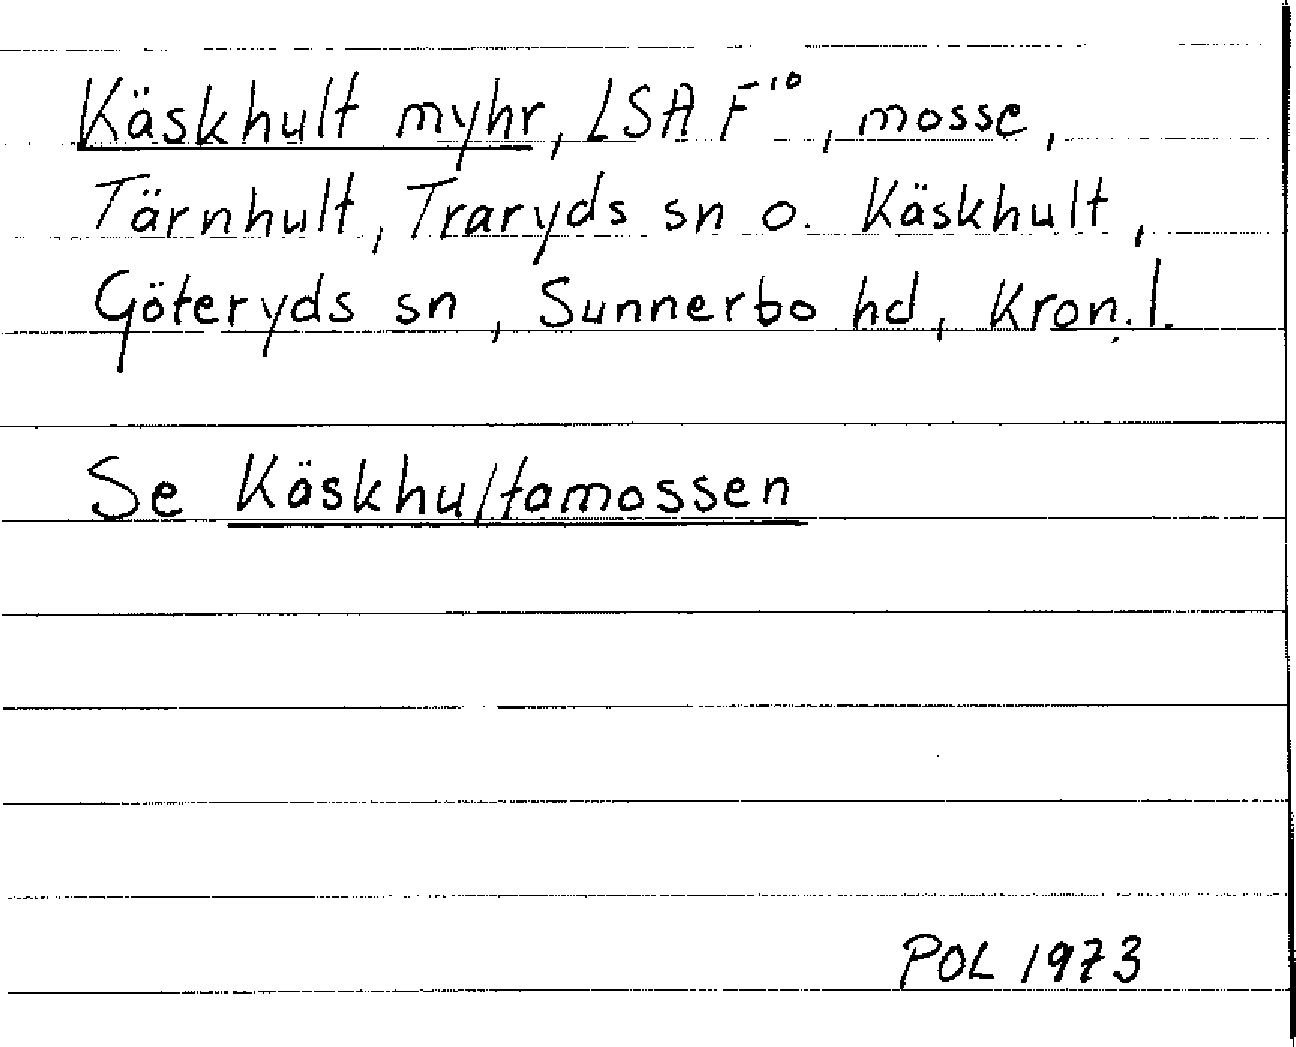 Käskhult myhr, LSA F¹⁰, mosse,
Tärnhult, Traryds sn o. Käskhult,
Göteryds sn, Sunnerbo hd, Kron. l.
Se Käskhultamossen
POL 1973